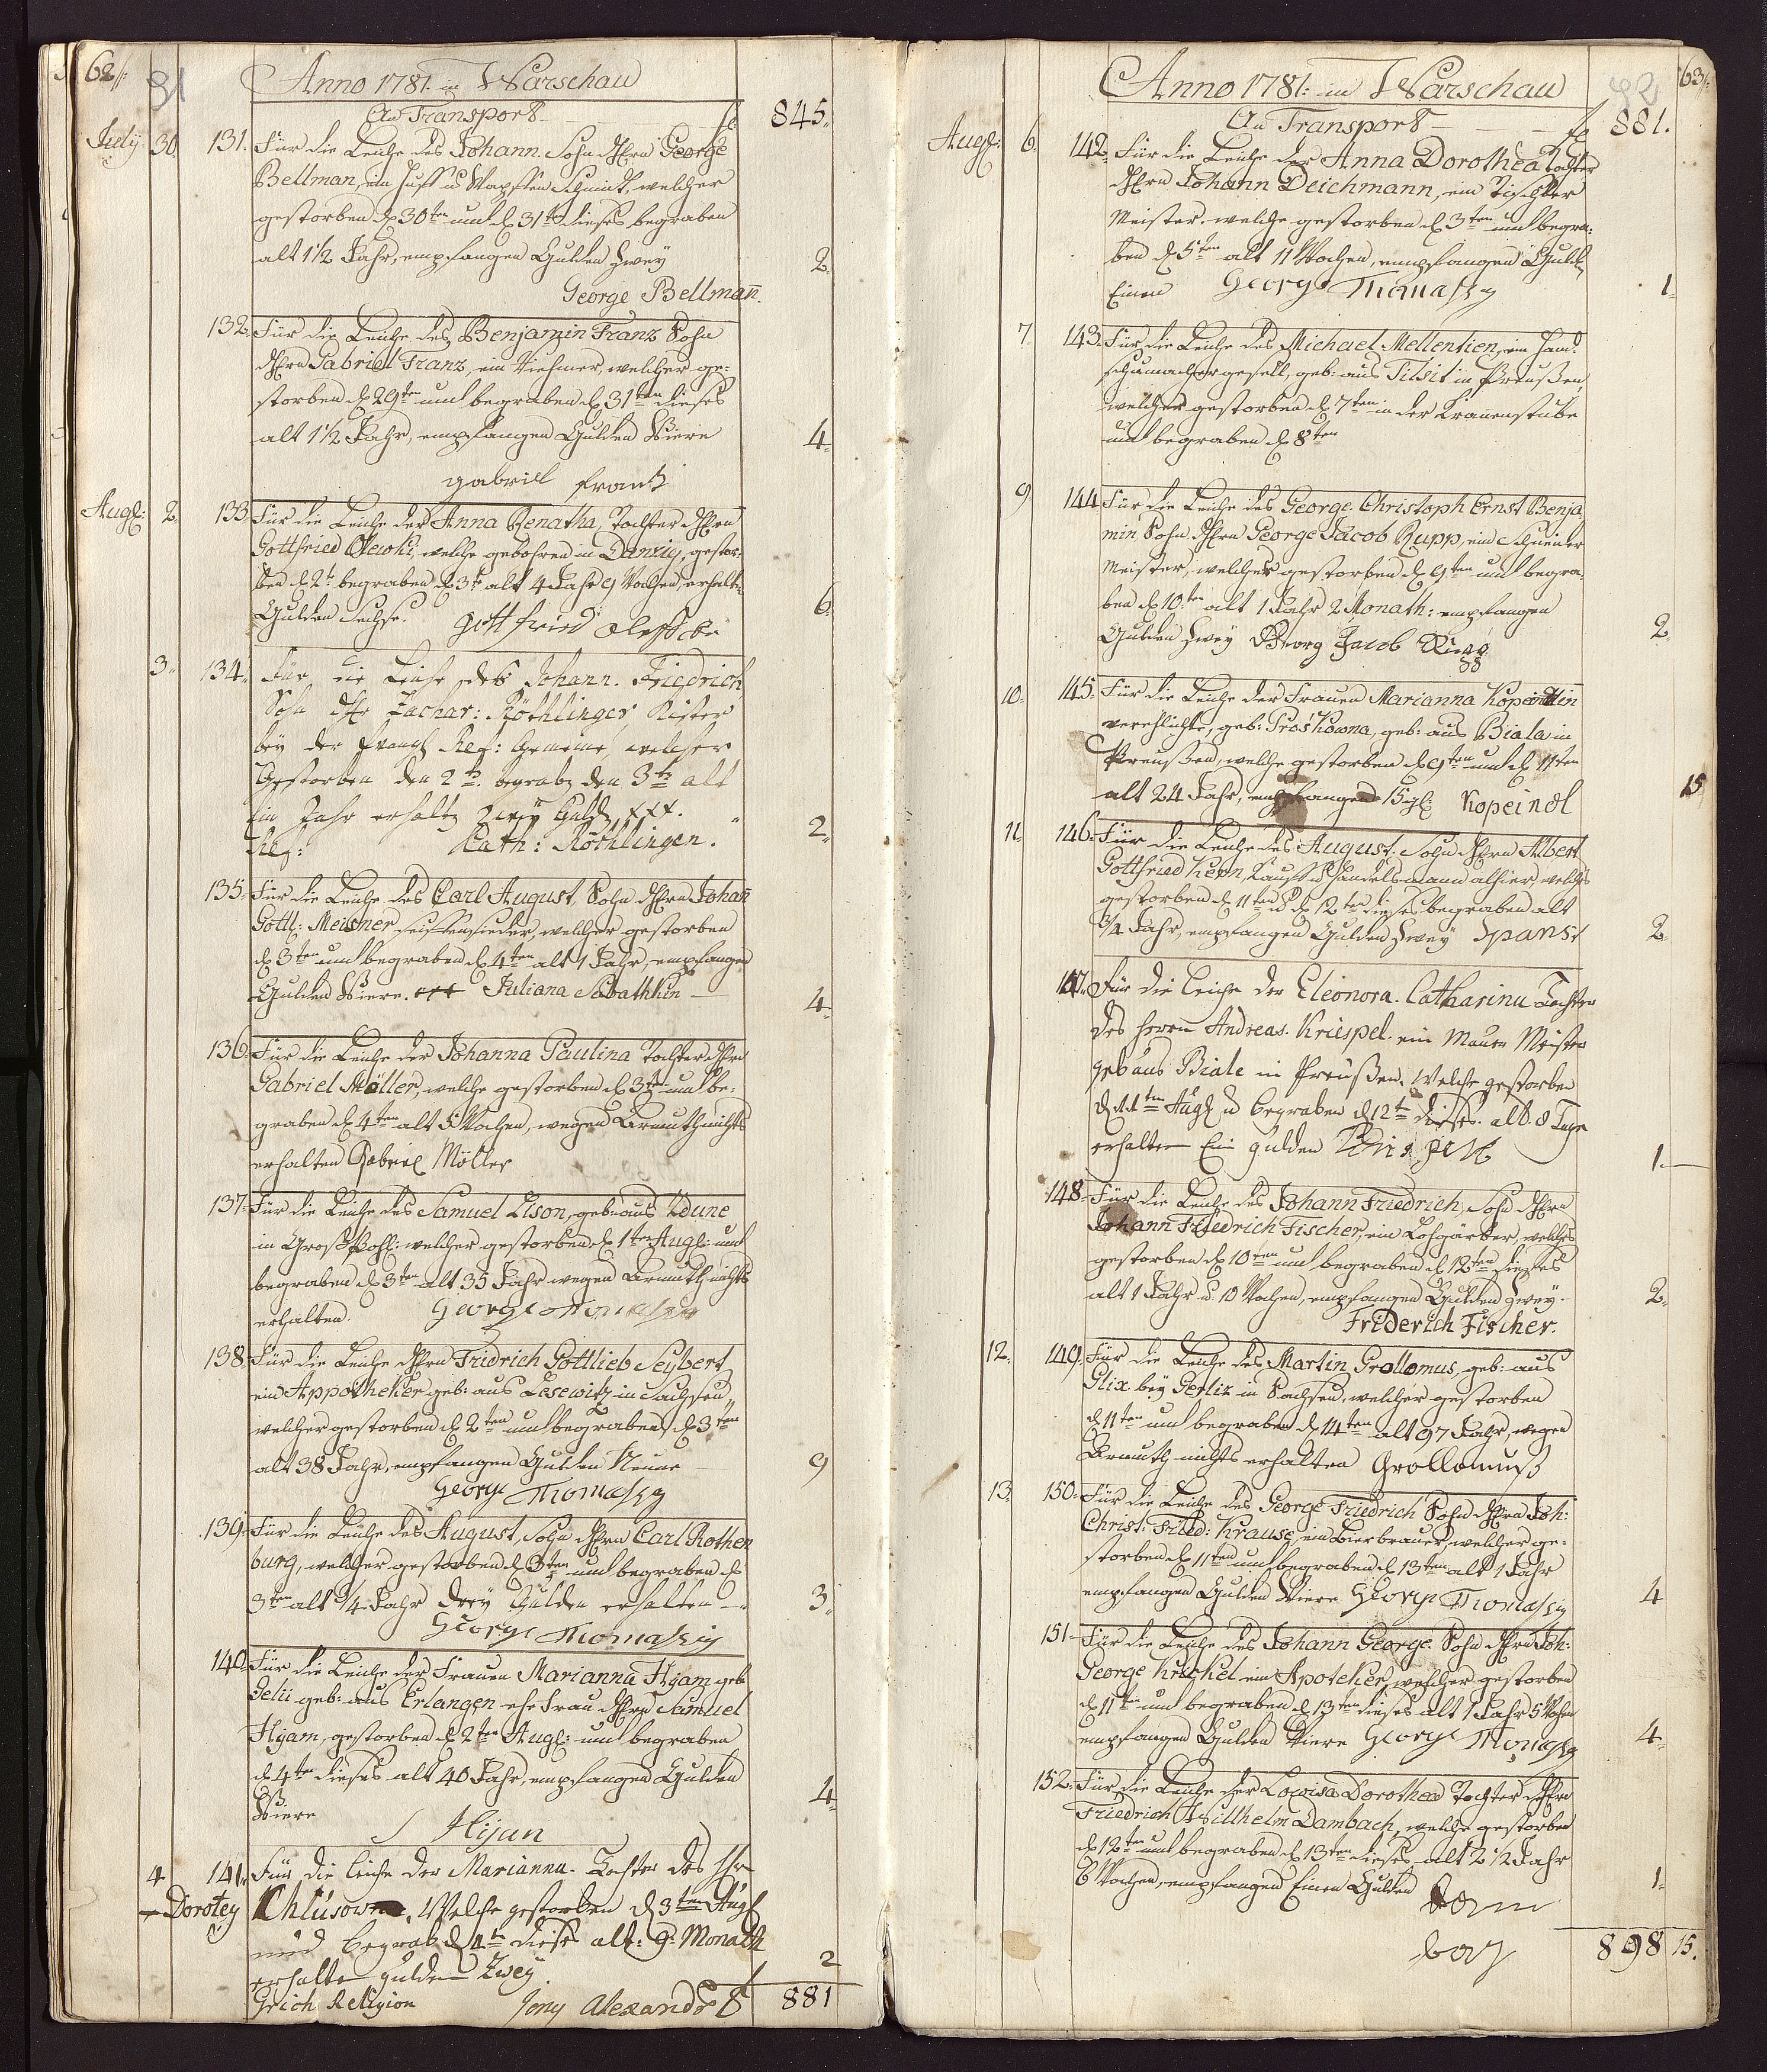 62/:
81
Anno 1781. in Warschau
An Transport fl 845„
July 30. 131. Für die Leiche des Johann. Sohn dhErn George
Bellman, ein Huff u Waffen Schmidt, welcher
gestorben d 30ten und d 31ten dieses begraben
alt 1 1/2 Jahr, empfangen Gulden Zwey 2„
George Bellmañ.
132. Für die Leiche des Benjamin Franz Sohn
dhErn Gabriel Franz, ein, welcher ge:
storben d 29ten und begraben d 31ten dieses
alt 1 1/2 Jahr, empfangen Gulden Viere 4„
gabriell frantz
Aug: 2. 133 Für die Leiche der Anna Renatha, Tochter dhErn
Gottfried Olewski, welche gebohren in Danzig, gestor:
ben d 2t begraben d 3t alt 4 Jahr 9 Wochen, erhalten
Gulden Sechse. gottfried 6„
3„ 134„ Für die Leiche des Johann. Friedrich
Sohn dhE Zachar: Röthlinger, Kister
bey der Evangl Ref: Gemeine, welcher
Gestorben den 2tz. begrab den 3tz alt
Ein Jahr erhaltz Zwey Guld xxx. „ 2„
Ref: Cath: Röthlingen.
135. Für die Leiche des Carl August, Sohn dhErn Johañ
Gottl: Meisner Seiffensieder, welcher gestorben
d 3ten und begraben d 4ten alt 1 Jahr, empfangen
Gulden Viere. +++ Juliana Sabathkin 4„
136. Für die Leiche der Johanna Paulina Tochter dhErn
Gabriel Möller, welche gestorben d 3ten und be:
graben d 4ten alt 5 Wochen, wegen Armuth nichts
erhalten Gabriel Möller
137. Für die Leiche des Samuel Lison, geb: aus Zdune
in Groß Pohl: welcher gestorben d 1ten Aug: und
begraben d 3ten alt 35 Jahr wegen Armuth nichts
erhalten. George Thomassy
138. Für die Leiche dhErn Fridrich Gottlieb Seybert
ein Appotheker geb: aus Lesewitz in Sachsen,
welcher gestorben d 2ten und begraben d 3ten
alt 38 Jahr, empfangen Gulden Neune 9
George Thomassy
139. Für die Leiche des August, Sohn dhErn Carl Rothen
burg, welcher gestorben d 3ten und begraben d
3ten alt 1/4 Jahr Drey Gulden erhalten 3„
George Thomassy
140. Für die Leiche der Frauen Marianna Hyam geb:
Gelii geb: aus Erlangen ehe Frau dhErn Samuel
Hyam, gestorben d 2ten Aug: und begraben
d 4ten dieses alt 40 Jahr, empfangen Gulden
Viere 4„
S Hijan
4 141. Für die Leiche der Marianna. Tochter des Hr
Dorotey Chlusow, Welche gestorben d 3ten Aug
und begrab d 4tn diese alt: 9. Monath
erhalten gulden Zwey. 2
Grich Religion Jony Alexandro fl 881
63/:
82
Anno 1781: in Warschau
An Transport fl 881.
Aug: 6. 142. Für die Leiche der Anna Dorothea Tochter
dhErn Johann Deichmann, ein Tischler
Meister, welche gestorben d 3ten und begra:
ben d 5ten alt 11 Wochen, empfangen Gulden
Einen George Thomassy 1„
7. 143. Für die Leiche des Michael Mellentien, ein Hand
schumacher gesell, geb: aus Tilsit in Preußen,
welcher gestorben d 7ten in der Krankenstube
und begraben d 8ten
9. 144. Für die Leiche des George Christoph Ernst Benja
min, Sohn dhErn George Jacob Rupp, ein Schneider
Meister, welcher gestorben d 9ten und begra:
ben d 10ten alt 1 Jahr 2 Monath: empfangen
Gulden Zwey Georg Jacob Rupp 2„
10. 145. Für die Leiche der Frauen Marianna Kopeindlin
verehlichte, geb: Proskowna, geb: aus Biala in
Preußen, welche gestorben d 9ten und d 11ten
alt 24 Jahr, empfangen 15 gl: Kopeindl 15
11. 146. Für die Leiche des August. Sohn dhErn Albert
Gottfried Kern, Kauf u Handelsmann alhier, welcher
gestorben d 11ten u d 12ten dieses begraben alt
3/4 Jahr, empfangen Gulden Zwey Spanst 2„
147. Für die Leiche der Eleonora. Catharina Tochter
des Herrn Andreas. Kriespel. ein Maurer Meister
geb aus Biale in Preußen. Welche gestorben
d 11ten Aug u begraben d 12tn dieses. alt. 8 Tage
erhalten Ein gulden 1.
148. Für die Leiche des Johann Friedrich, Sohn dhErn
Johann Friedrich Fischer, ein Lohgärber, welcher
gestorben d 10ten und begraben d 12ten dieses
alt 1 Jahr u. 10 Wochen, empfangen Gulden Zwey. 2„
Friderich Fischer.
12. 149. Für die Leiche des Martin Grollomus, geb: aus
Glix bey Gerliz in Sachsen, welcher gestorben
d 11ten und begraben d 14ten alt 97 Jahr, wegen
Armuth nichts erhalten Grollomuß
13. 150. Für die Leiche des George Friedrich Sohn dhErn Joh:
Christ: Fried: Krause, ein Bierbrauer, welcher ge:
storben d 11ten und begraben d 13ten alt 1 Jahr
empfangen Gulden Viere George Thomassy 4
151. Für die Leiche des Johann George Sohn dhErn Joh:
George Krickel ein Apoteker, welcher gestorben
d 11ten und begraben d 13ten dieses alt 1 Jahr 5 Wochen
empfangen Gulden Viere George Thomassy 4„
152. Für die Leiche der Lowisa Dorothea Tochter dhErn
Friedrich Willhelm Dambach, welche gestorben
d 12ten und begraben d 13ten dieses alt 2 1/2 Jahr
6 Wochen, empfangen Einen Gulden 1„
898 15.